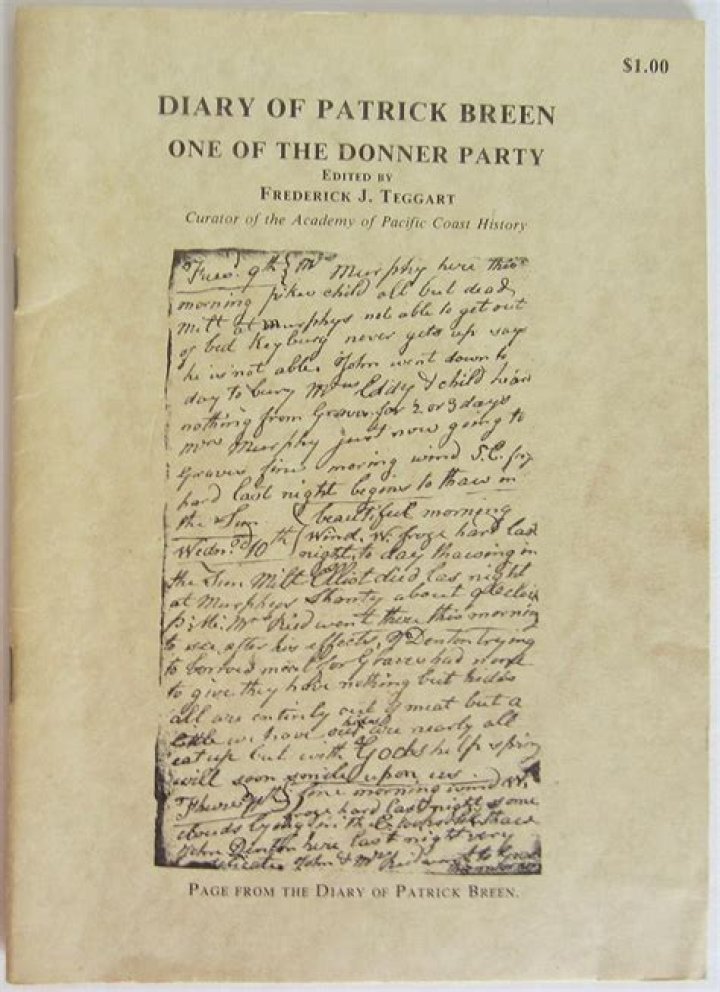 $1.00
DIARY OF PATRICK BREEN
ONE OF THE DONNER PARTY
EDITED BY
FREDERICK J. TEGGART
Curator of the Academy of Pacific Coast History
Tues. 9th Mrs Murphy here this
morning pikes child all but dead
Milt at Murphys not able to get out
of bed Keyburg never gets up says
he is not able. John went down to
day to bury Mrs Eddy & child heard
nothing from Graves for 2 or 3 days
Mrs Murphy just now going to
Graves fine morning wind S.E. froze
hard last night begins to thaw in
the Sun
beautiful morning
Wednsd 10th Wind. W. froze hard last
night, to day thawing in
the Sun Milt Elliot died las night
at Murphys Shanty about 9 oclock
P.M. Mrs Ried went there this morning
to see after his effects. J Denton trying
to borrow meat for Graves had none
to give they have nothing but hides
all are entirely out of meat but a
little we have our hides are nearly all
eat up but with Gods help spring
will soon smile upon us.
Thursd 11th fine morning wind W.
froze hard last night some
clouds lying in the E. looks like thaw
John Denton here last night very
delicate John & Mrs Ried went to Graves
this morning
PAGE FROM THE DIARY OF PATRICK BREEN.